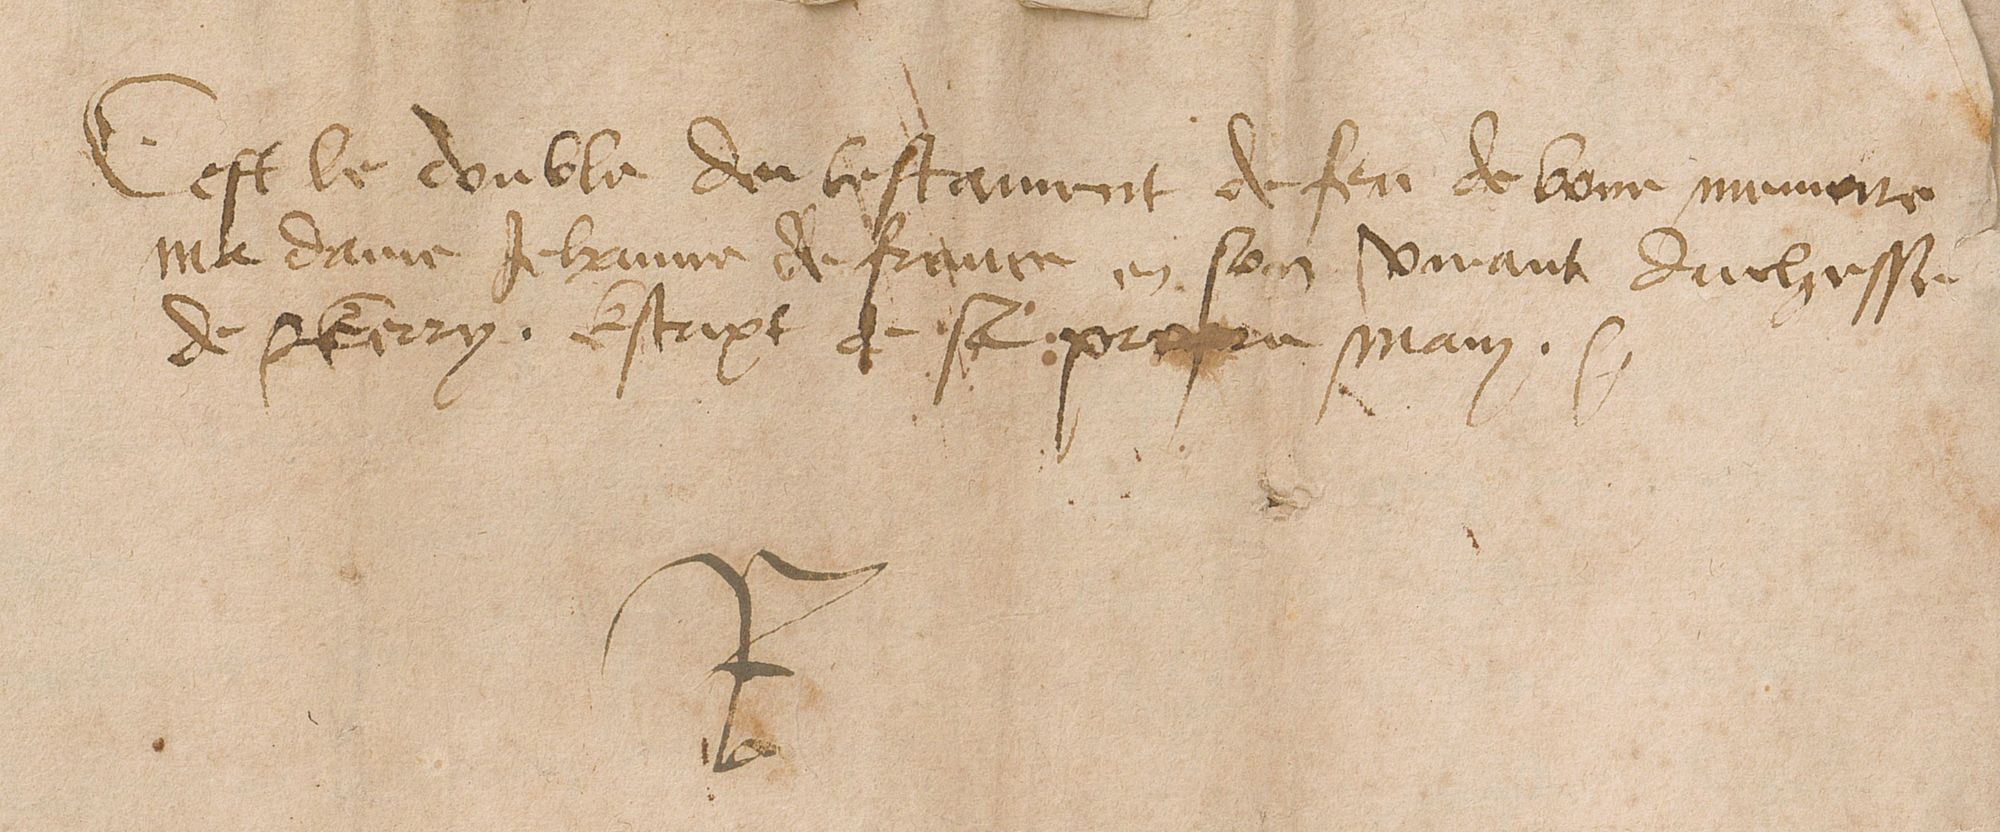 Cest le double du testament de feu de bone memoire
ma dame Jehanne de france en son vivant duchesse
de Berry. Escript de sa propre main.